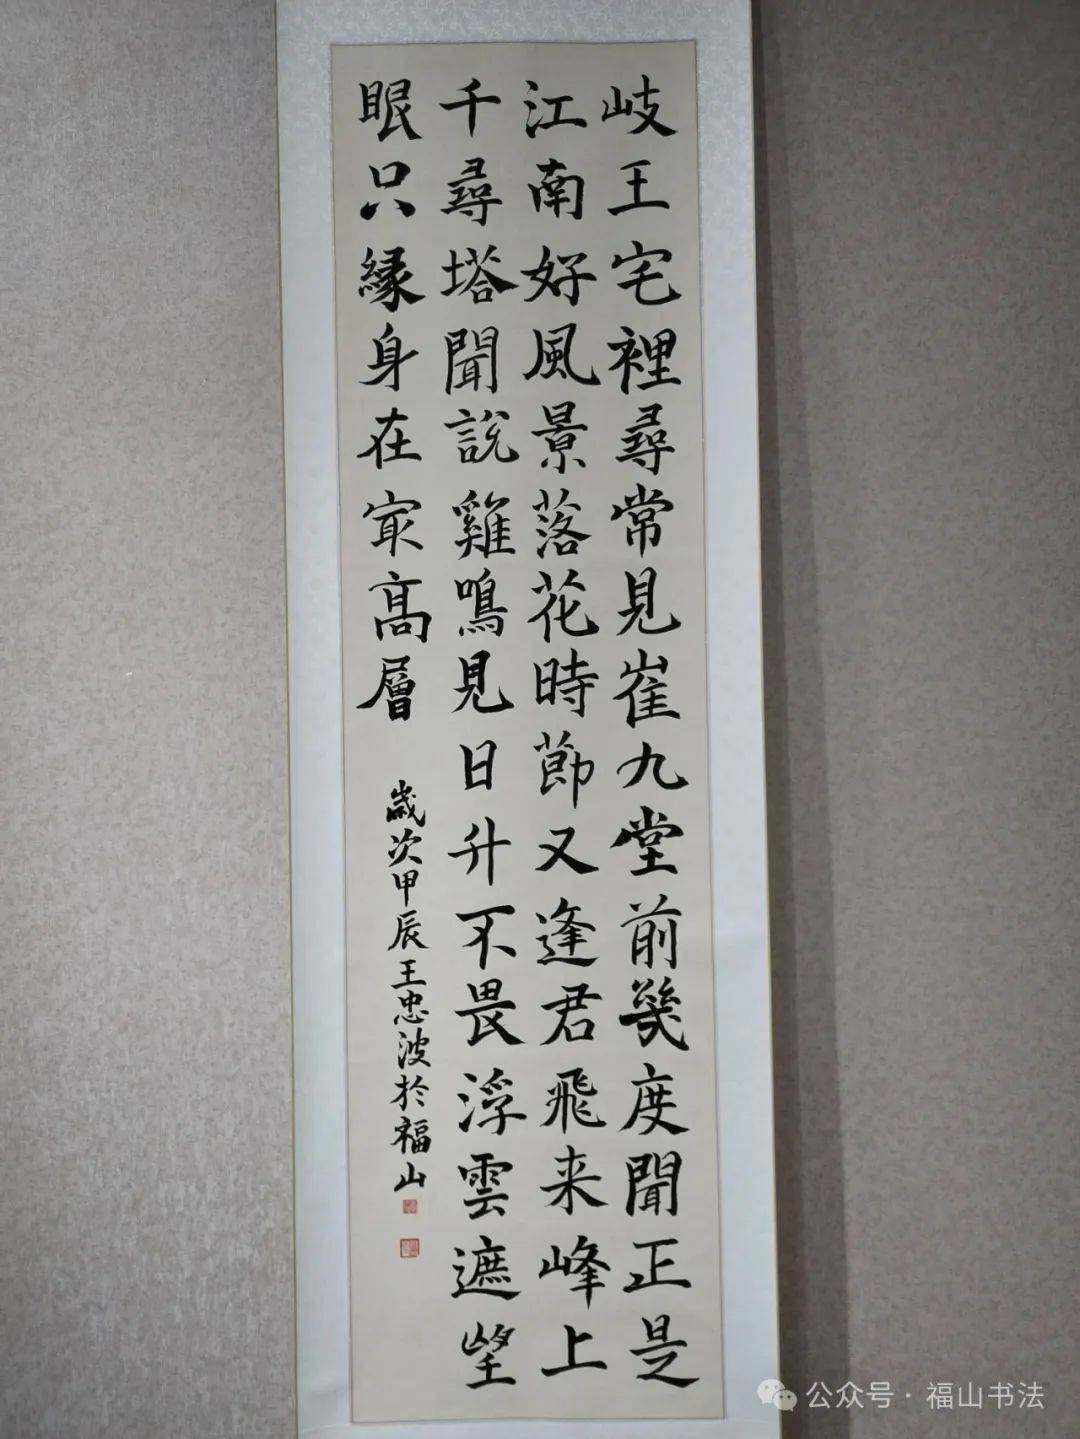 岐王宅裡尋常見崔九堂前幾度聞正是
江南好風景落花時節又逢君飛来峰上
千尋塔聞説雞鳴見日升不畏浮雲遮望
眼只緣身在㝡髙層
歲次甲辰王忠波於福山
公众号 · 福山书法